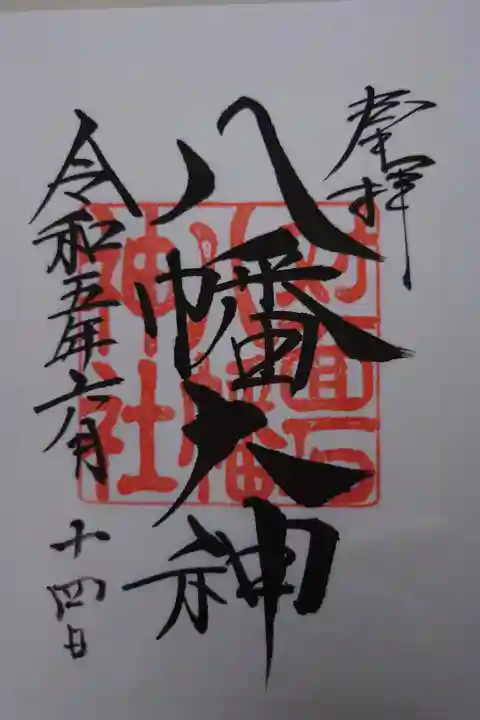 奉拝
八幡大神
対面石
八幡
神社
令和五年六月
十四日